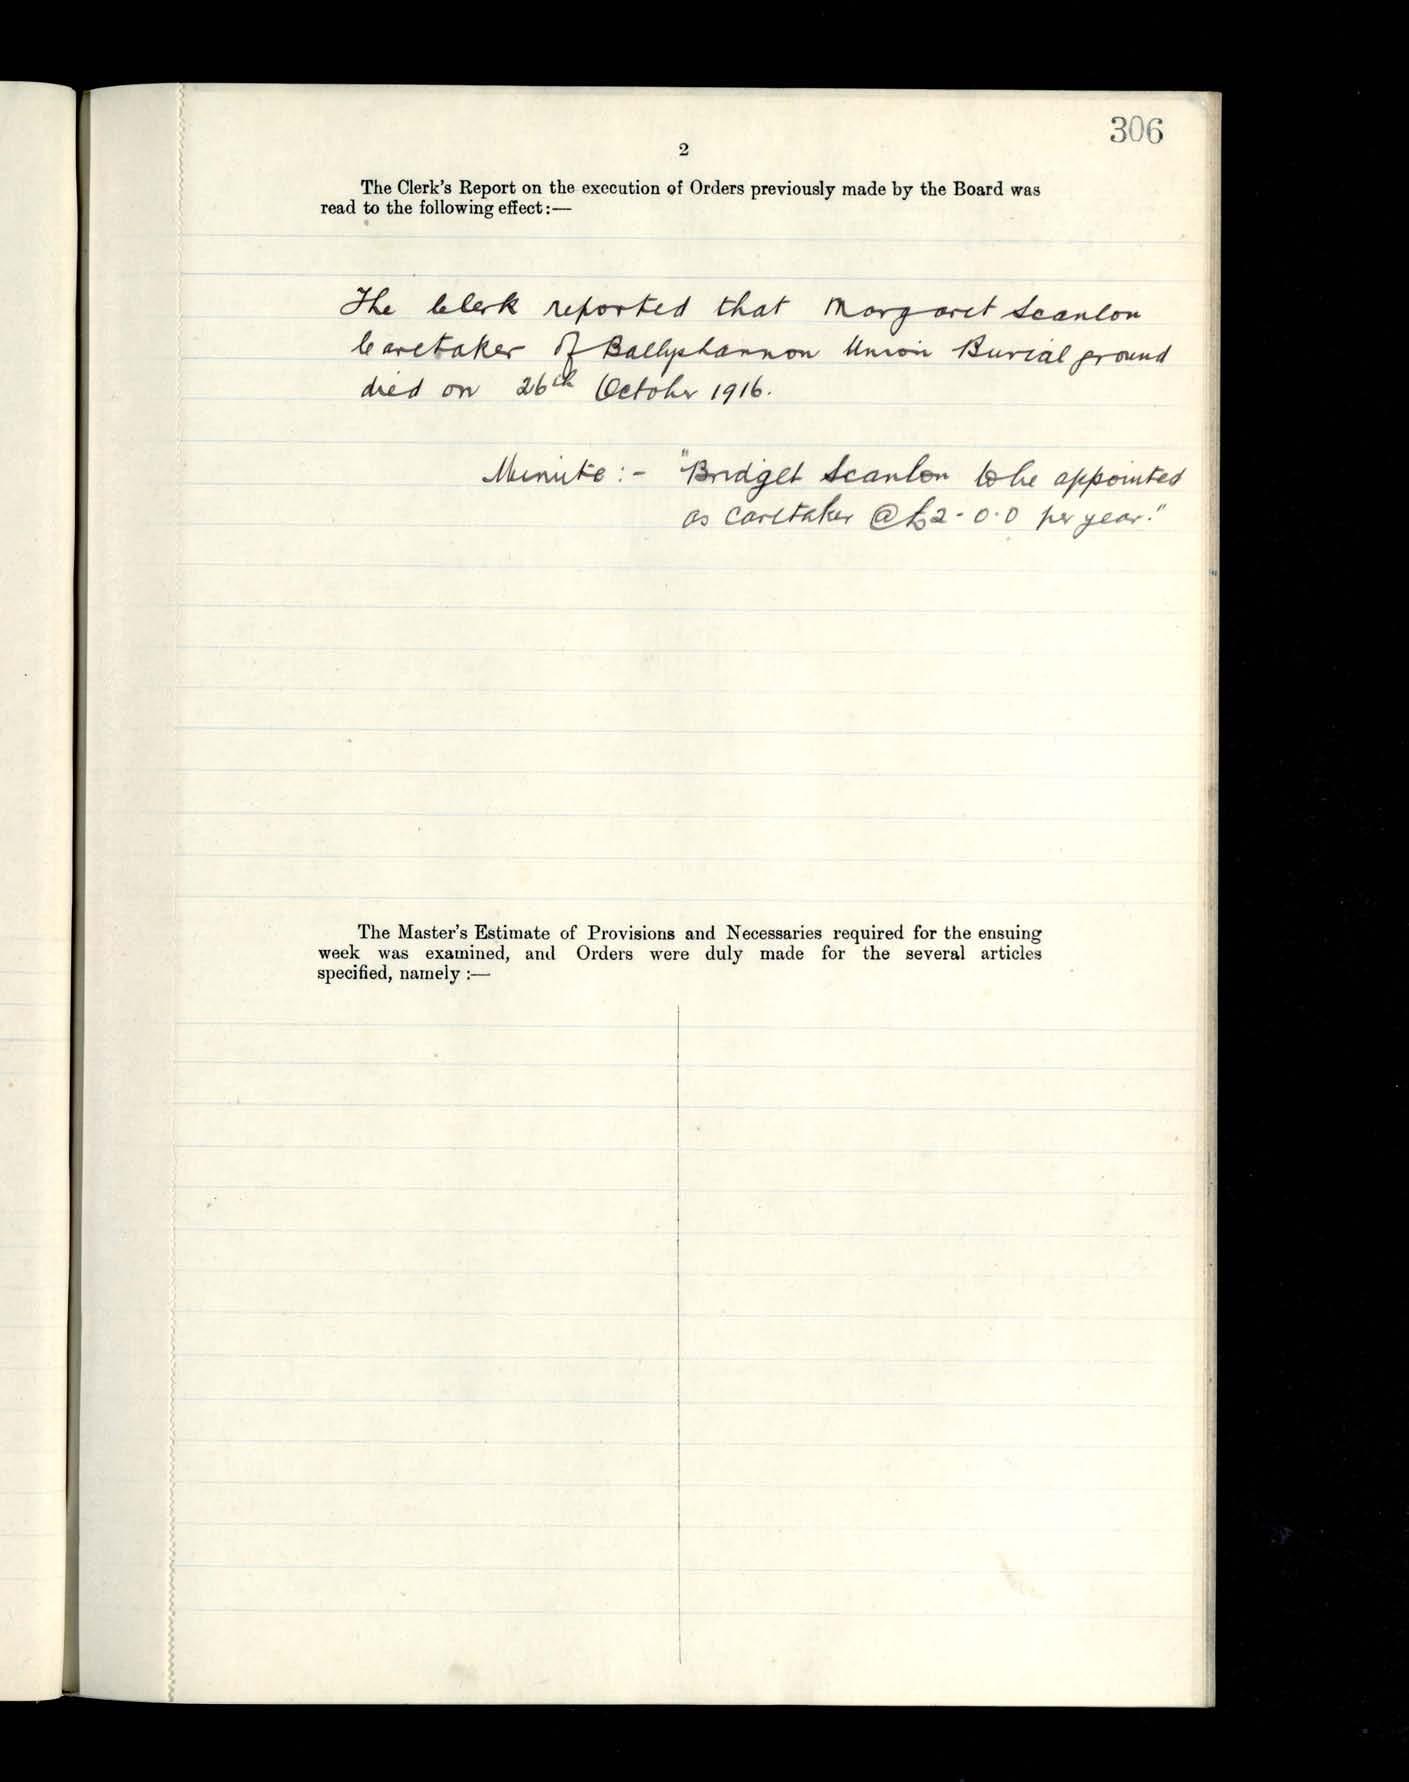 306
2
The Clerk's Report on the execution of Orders previously made by the Board was
read to the following effect:—
The Clerk reported that Margaret Scanlon
Caretaker of Ballyshannon Union Burial ground
died on 26th October 1916.
Minute:- "Bridget Scanlon to be appointed
as caretaker @ £2-0-0 per year."
The Master's Estimate of Provisions and Necessaries required for the ensuing
week was examined, and Orders were duly made for the several articles
specified, namely:—